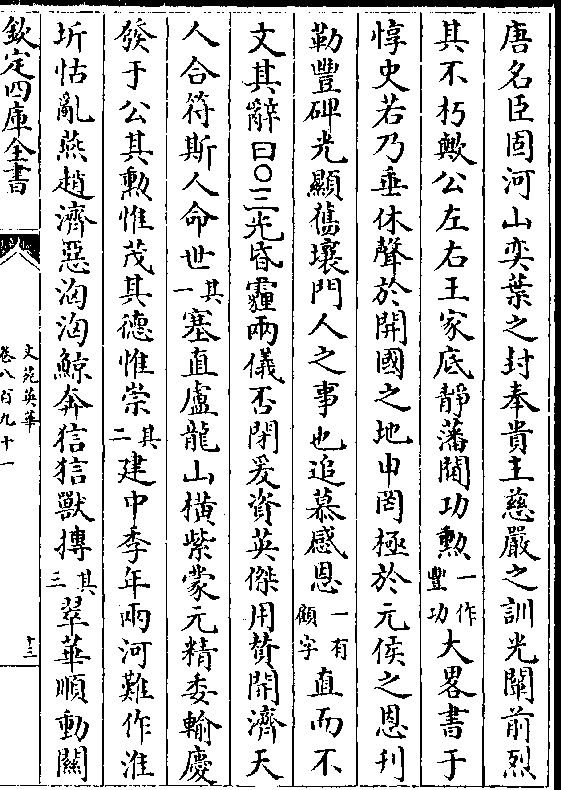 唐名臣固河山奕葉之封奉貴主慈嚴之訓光闡前烈
其不朽歟公左右王家底靜藩閫功勲一作豐功大畧書于
惇史若乃垂休聲於開國之地申罔極於元侯之恩刋
勒豐碑光顯舊壤門人之事也追慕感恩一有顧字直而不
文其辭曰○三光昏霾兩儀否閉爰資英傑用賛開濟天
人合符斯人命世其一塞直盧龍山横紫蒙元精委輸慶
發于公其勲惟茂其德惟崇其二建中季年兩河難作淮
圻怙亂燕趙濟惡洶洶鯨奔狺狺獸摶其三翠華順動關
欽定四庫全書
文苑英華
卷八百九十一
十三